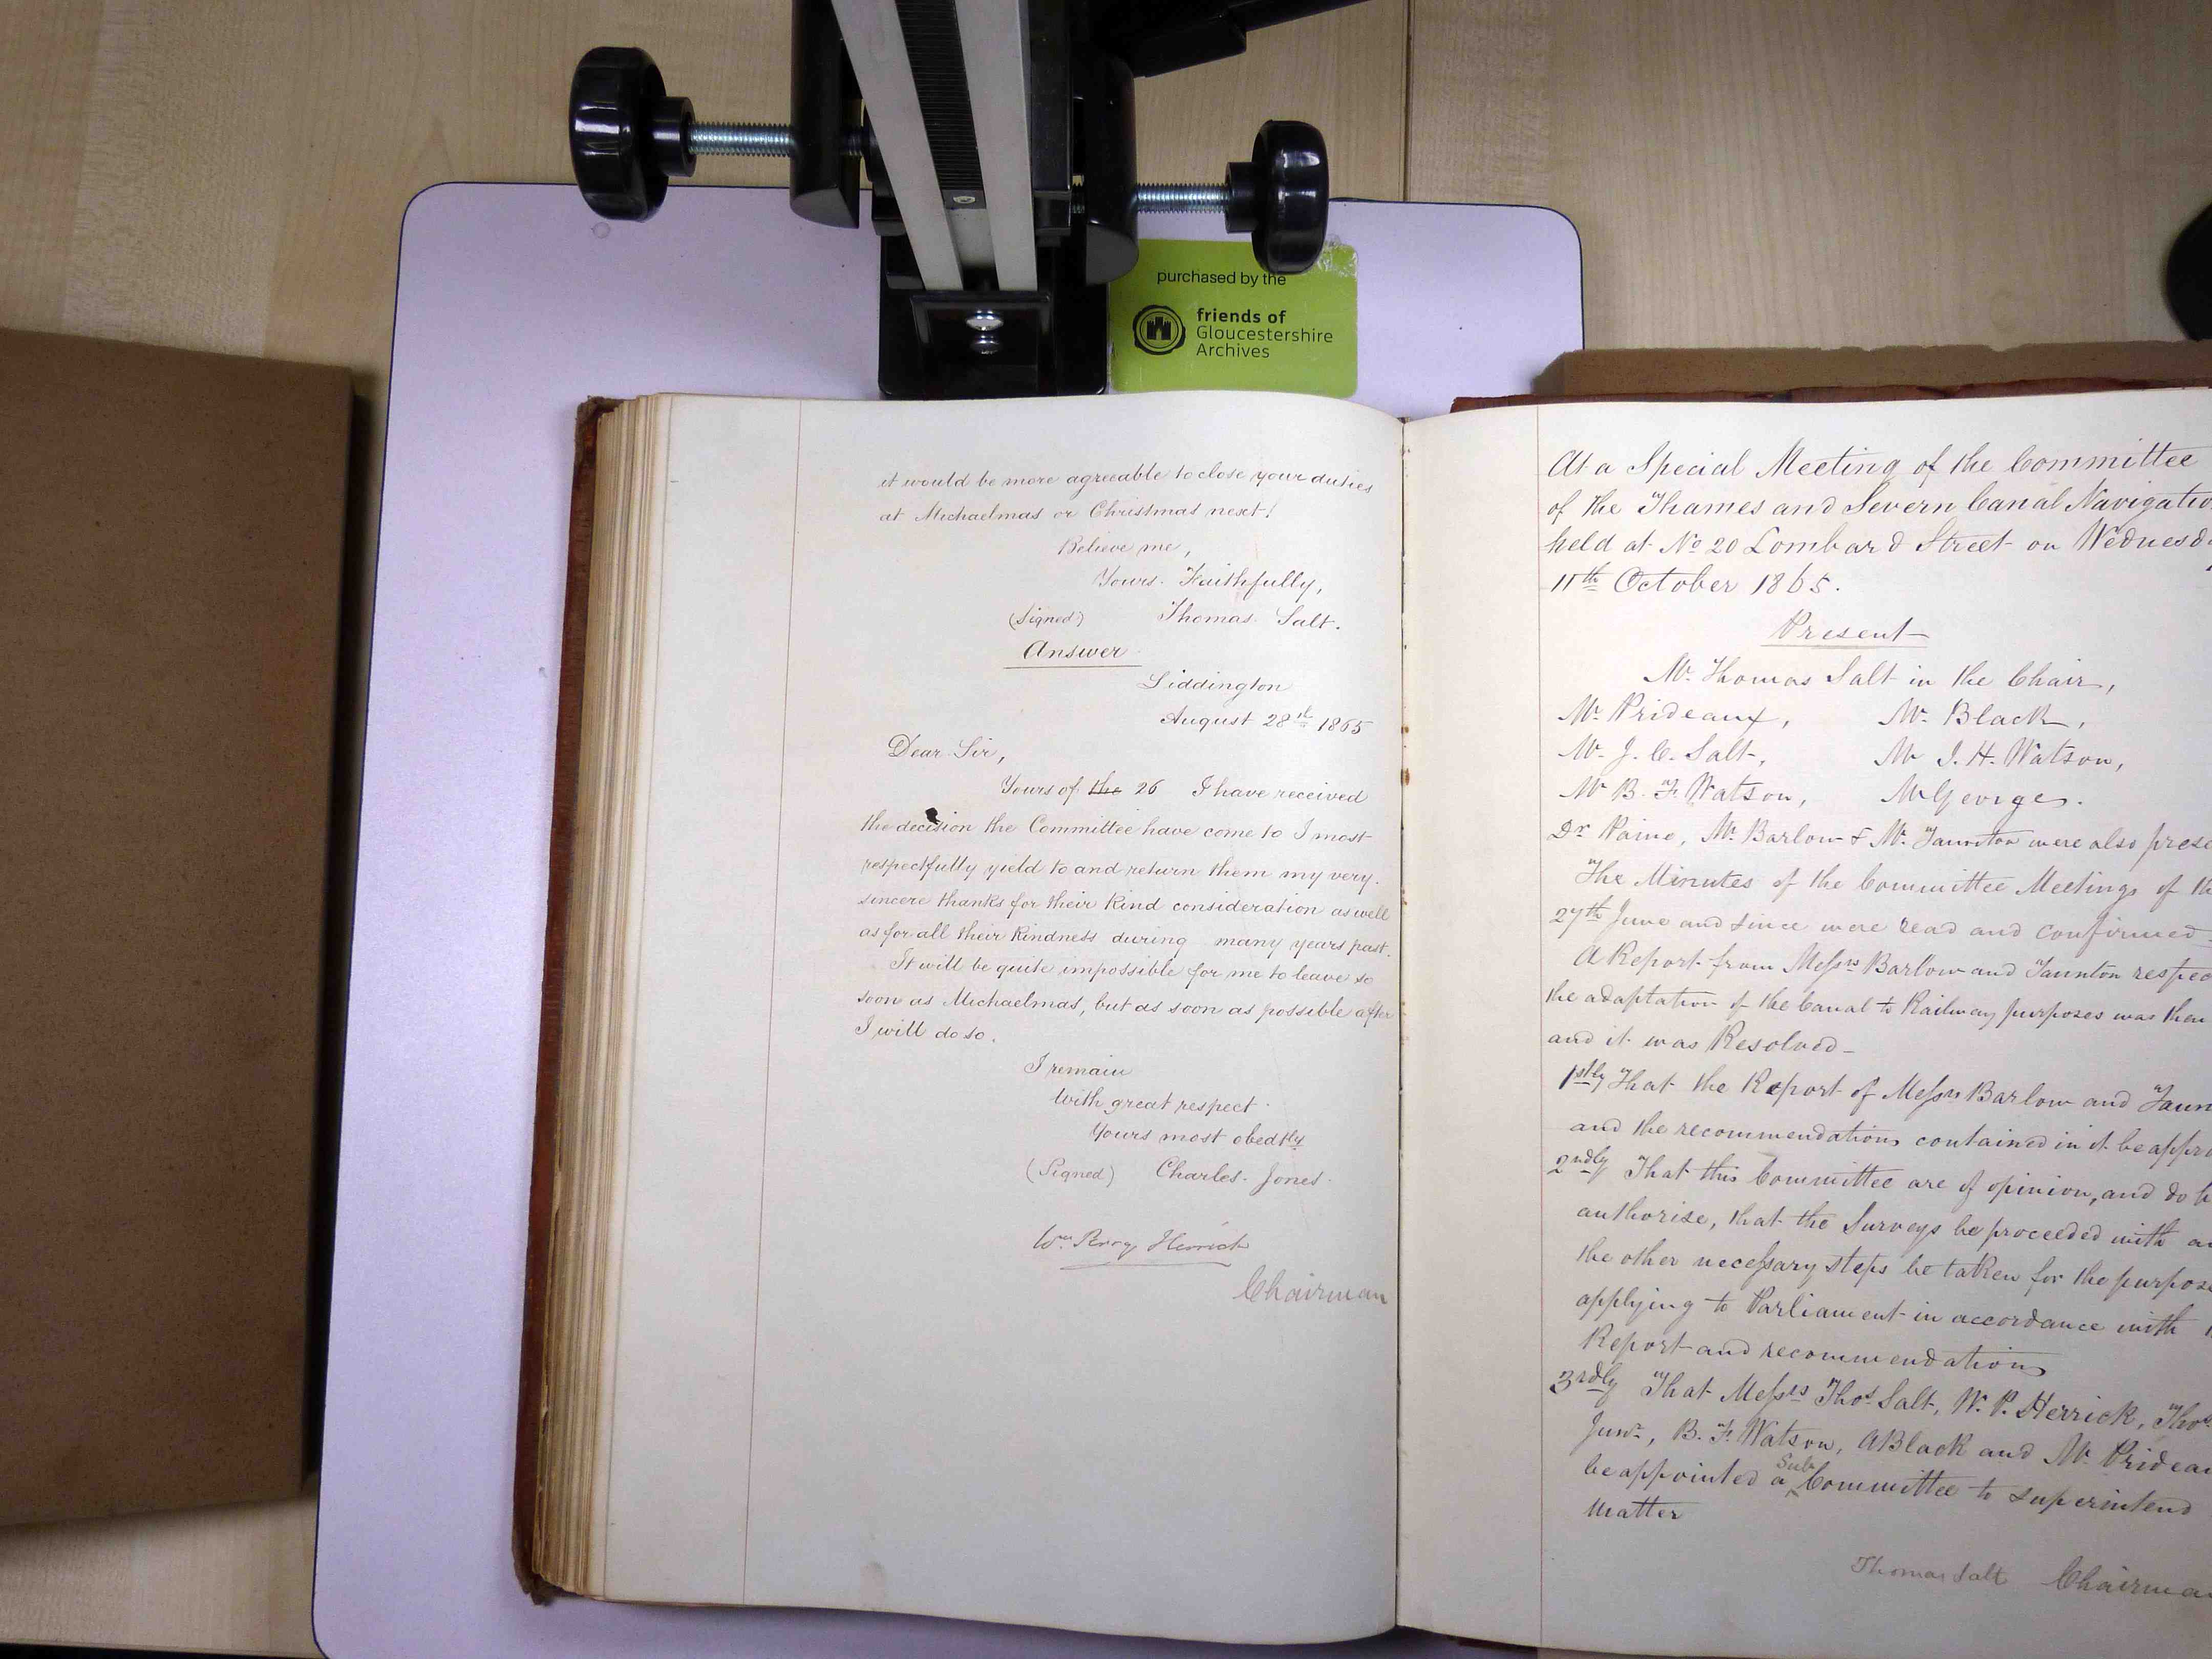 purchased by the
friends of
Gloucestershire
Archives
it would be more agreeable to close your duties
at Michaelmas or Christmas next!
Believe me,
Yours Faithfully,
(Signed) Thomas Salt.
Answer
Siddington
August 28th 1865
Dear Sir,
Yours of the 26 I have received
the decision the Committee have come to I most
respectfully yield to and return them my very
sincere thanks for their kind consideration as well
as for all their kindness during many years past.
It will be quite impossible for me to leave so
soon as Michaelmas, but as soon as possible after
I will do so.
I remain
with great respect
Yours most obedtly
(Signed) Charles Jones
Wm Perry Herrick
Chairman
At a Special Meeting of the Committee
of the Thames and Severn Canal Navigatio
held at No 20 Lombard Street on Wednesd
11th October 1865.
Present
Mr. Thomas Salt in the Chair,
Mr. Prideaux, Mr. Black,
Mr. J. C. Salt, Mr J. H. Watson,
Mr B. F. Watson, Mr George.
Dr Paine, Mr. Barlow & Mr. Taunton were also prese
The Minutes of the Committee Meetings of th
27th June and since were read and confirmed
A Report from Messrs Barlow and Taunton respec
the adaptation of the Canal to Railway purposes was then
and it was Resolved
1stly That the Report of Messrs Barlow and Taun
and the recommendations contained in it be appro
2ndly That this Committee are of opinion, and do h
authorise, that the Surveys be proceeded with a
the other necessary steps be taken for the purpose
applying to Parliament in accordance with
Report and recommendations
3rdly That Messrs Thos Salt, W. P. Herrick, Thos
Junr., B. F. Watson, A Black and Mr. Pridea
be appointed a Sub Committee to superintend
matter
Thomas Salt Chairma